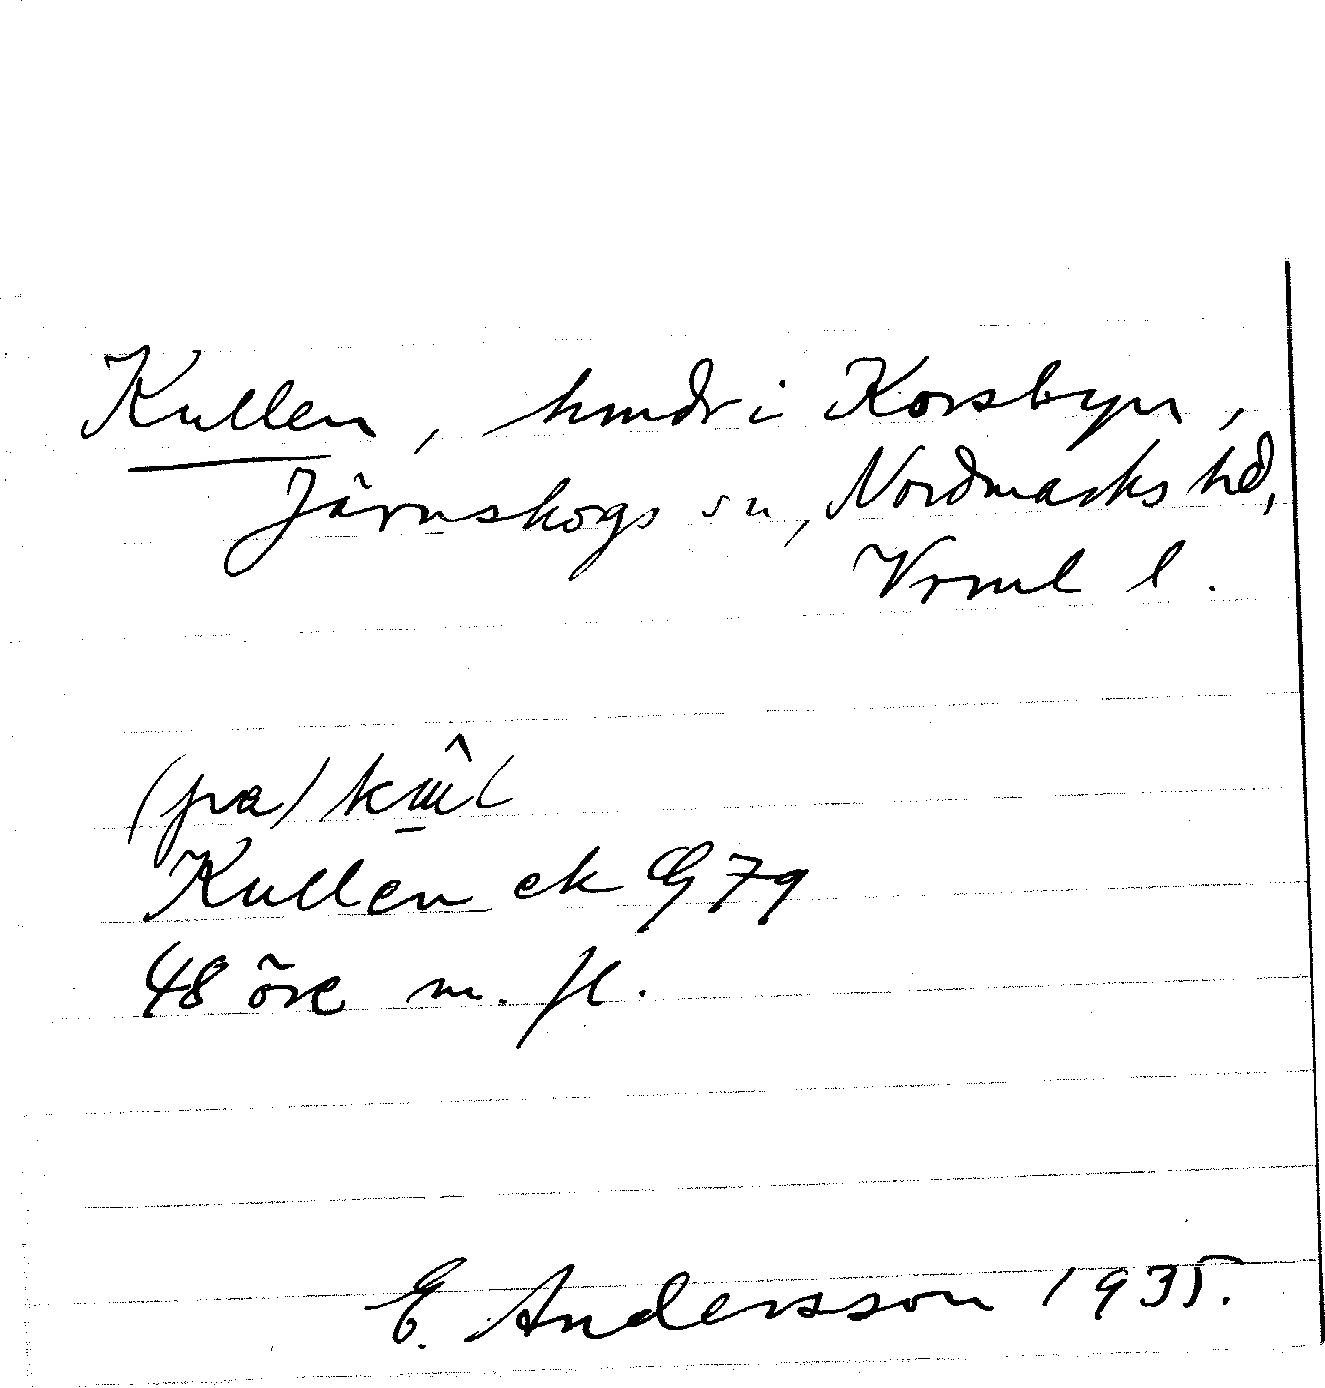 Kullen, hmdr i Korsbyn,
Järnskogs sn, Nordmarks hd,
Vrml l.
(pa)
Kullen ek G 79
48 öre m. fl.
E. Andersson 1935.